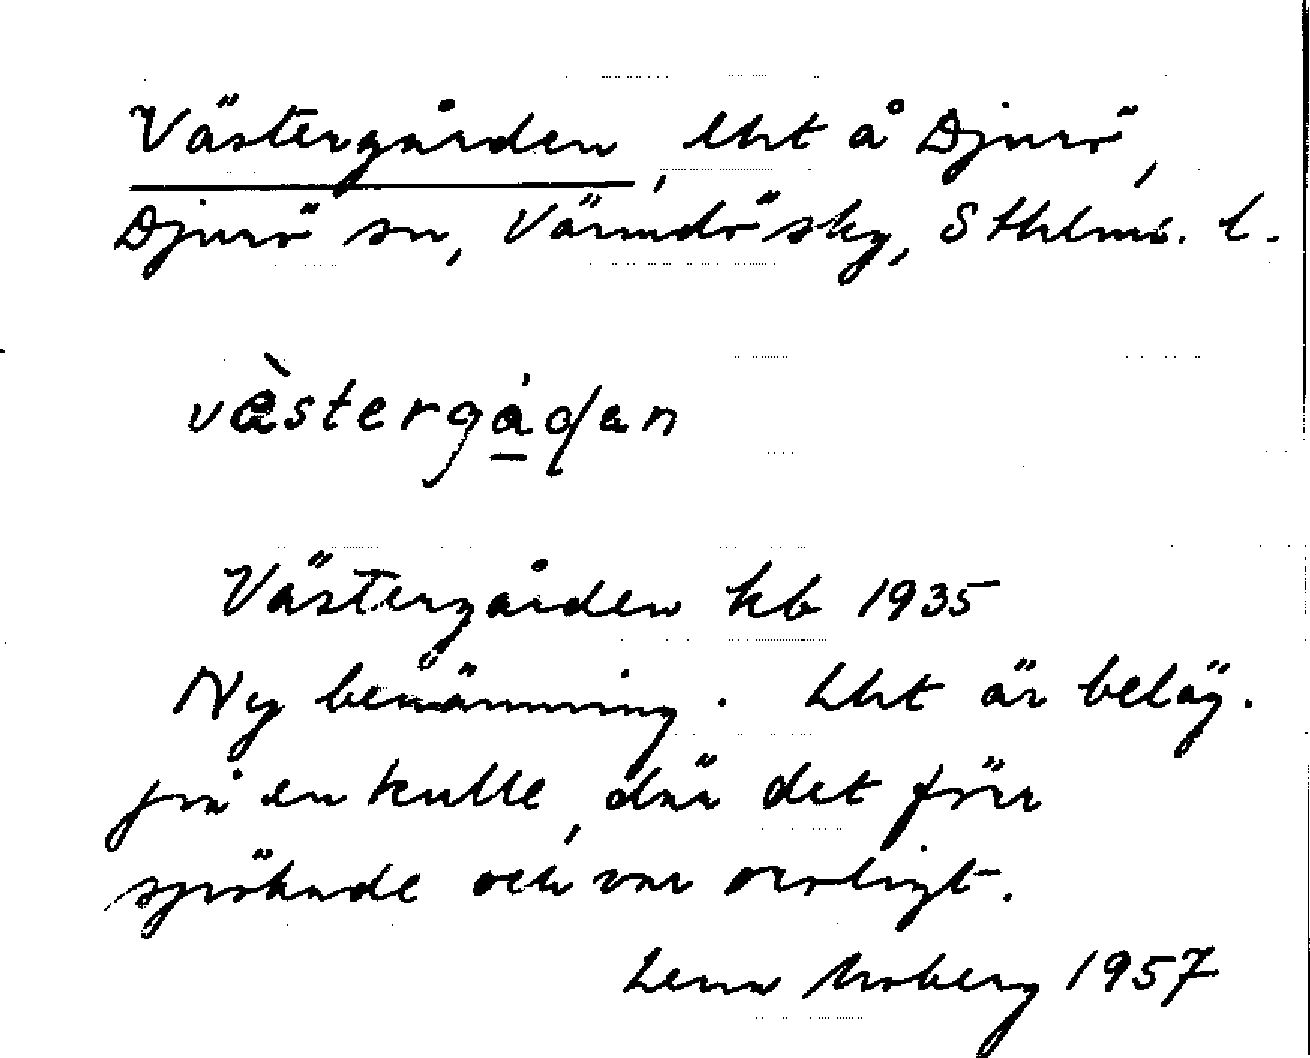 Västergården, lht å Djurö,
Djurö sn, Värmdö sky, Sthlms. l.
vä̀stergå̱dan
Västergården kb 1935
Ny benämning. Lht är beläg.
på en kulle, där det förr
spökade och var oroligt.
Lena Moberg 1957